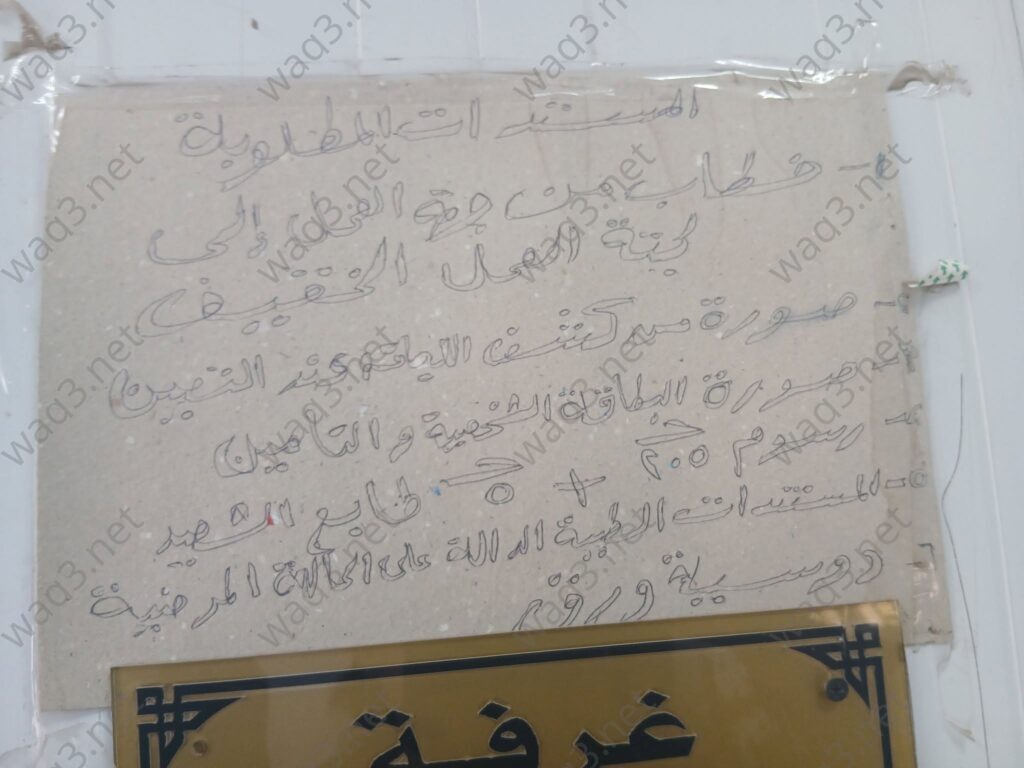 المستندات المطلوبة
١- خطاب من جهة العمل إلى
لجنة العمل الخفيف
٢- صورة من كشف اللياقة عند التعيين
٣- صورة البطاقة الشخصية والتأمين
٤- رسوم ٢٠٥ ج + ٥ ج طابع الشهيد
٥- المستندات الطبية الدالة على الحالة المرضية
٦- دوسية ورقى
غرفة
waq3.net